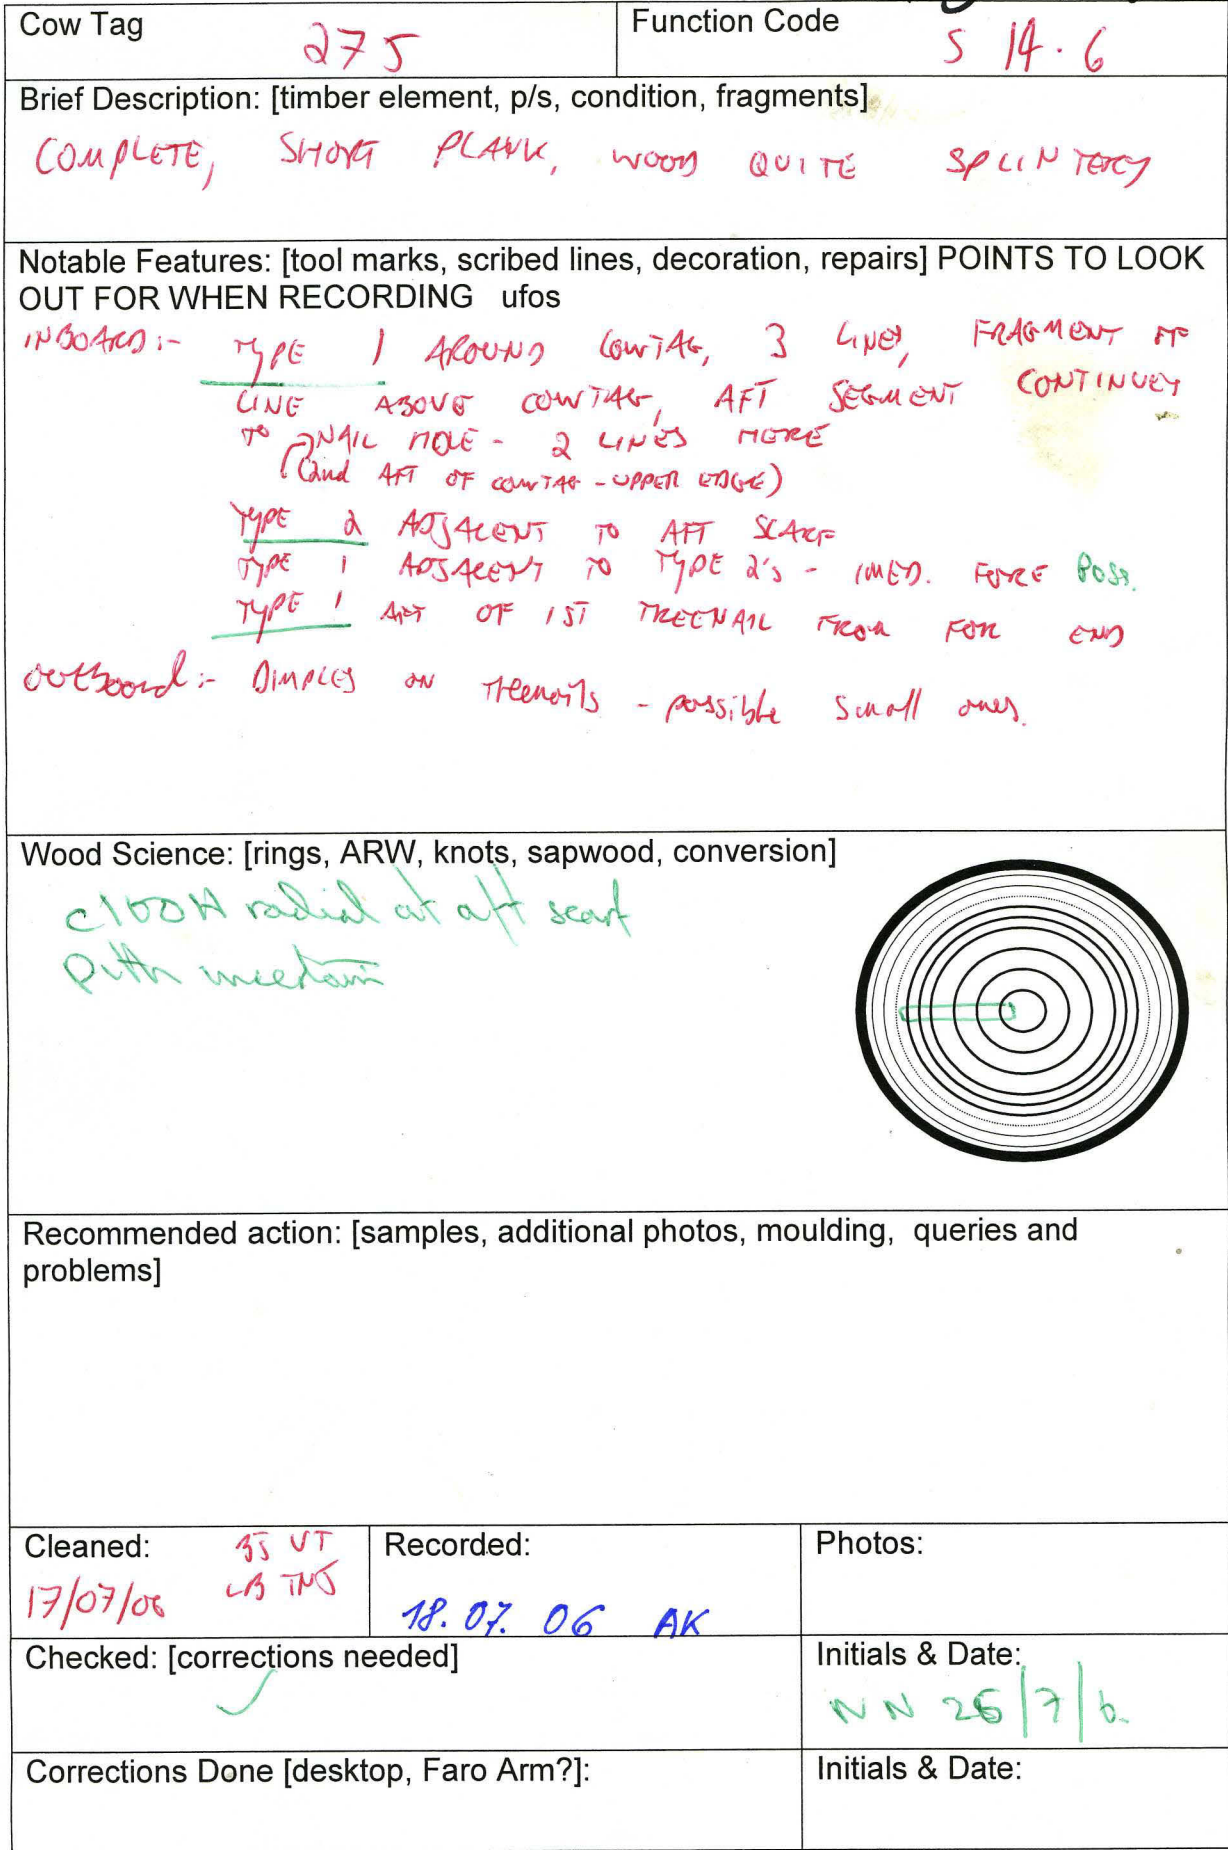 Cow Tag
275
Function Code
S 14.6
Brief Description: [timber element, p/s, condition, fragments]
COMPLETE, SHORT PLANK, WOOD QUITE SPLINTERY
Notable Features: [tool marks, scribed lines, decoration, repairs] POINTS TO LOOK
OUT FOR WHEN RECORDING ufos
INBOARD:- TYPE 1 AROUND COWTAG, 3 LINES, FRAGMENT OF
LINE ABOVE COWTAG, AFT SEGMENT CONTINUES
TO NAIL HOLE - 2 LINES HERE
(2nd AFT OF COWTAG - UPPER EDGE)
TYPE 2 ADJACENT TO AFT SCARF
TYPE 1 ADJACENT TO TYPE 2's - IMED. FORE Poss.
TYPE 1 AFT OF 1ST TREENAIL FROM FOR END
Outboard:- DIMPLES ON Treenails - possible small ones.
Wood Science: [rings, ARW, knots, sapwood, conversion]
c100H radial at aft scarf
Pith uncertain
Recommended action: [samples, additional photos, moulding, queries and
problems]
Cleaned:
BJ VT
17/07/06
LB TNJ
Recorded:
18.07.06 AK
Photos:
Checked: [corrections needed]
✓
Initials & Date:
NN 26/7/6
Corrections Done [desktop, Faro Arm?]:
Initials & Date: